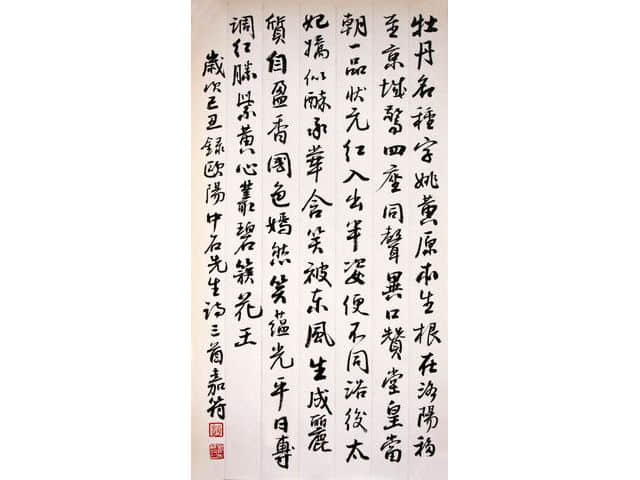 牡丹名種字姚黃原本生根在洛陽移
至京城驚四座同聲異口贊堂皇當
朝一品狀元紅入出半姿便不同浴後太
妃嬌似承華含笑被東風生成麗
質自盈香國色嫣然笑蘊光平日專
調紅勝紫黃心叢碧簇花王
歲次己丑錄歐陽中石先生詩三首嘉符